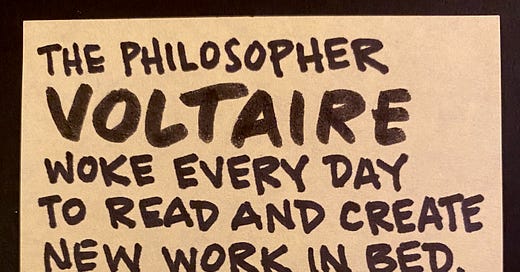 THE PHILOSOPHER
VOLTAIRE
WOKE EVERY DAY
TO READ AND CREATE
NEW WORK IN BED.